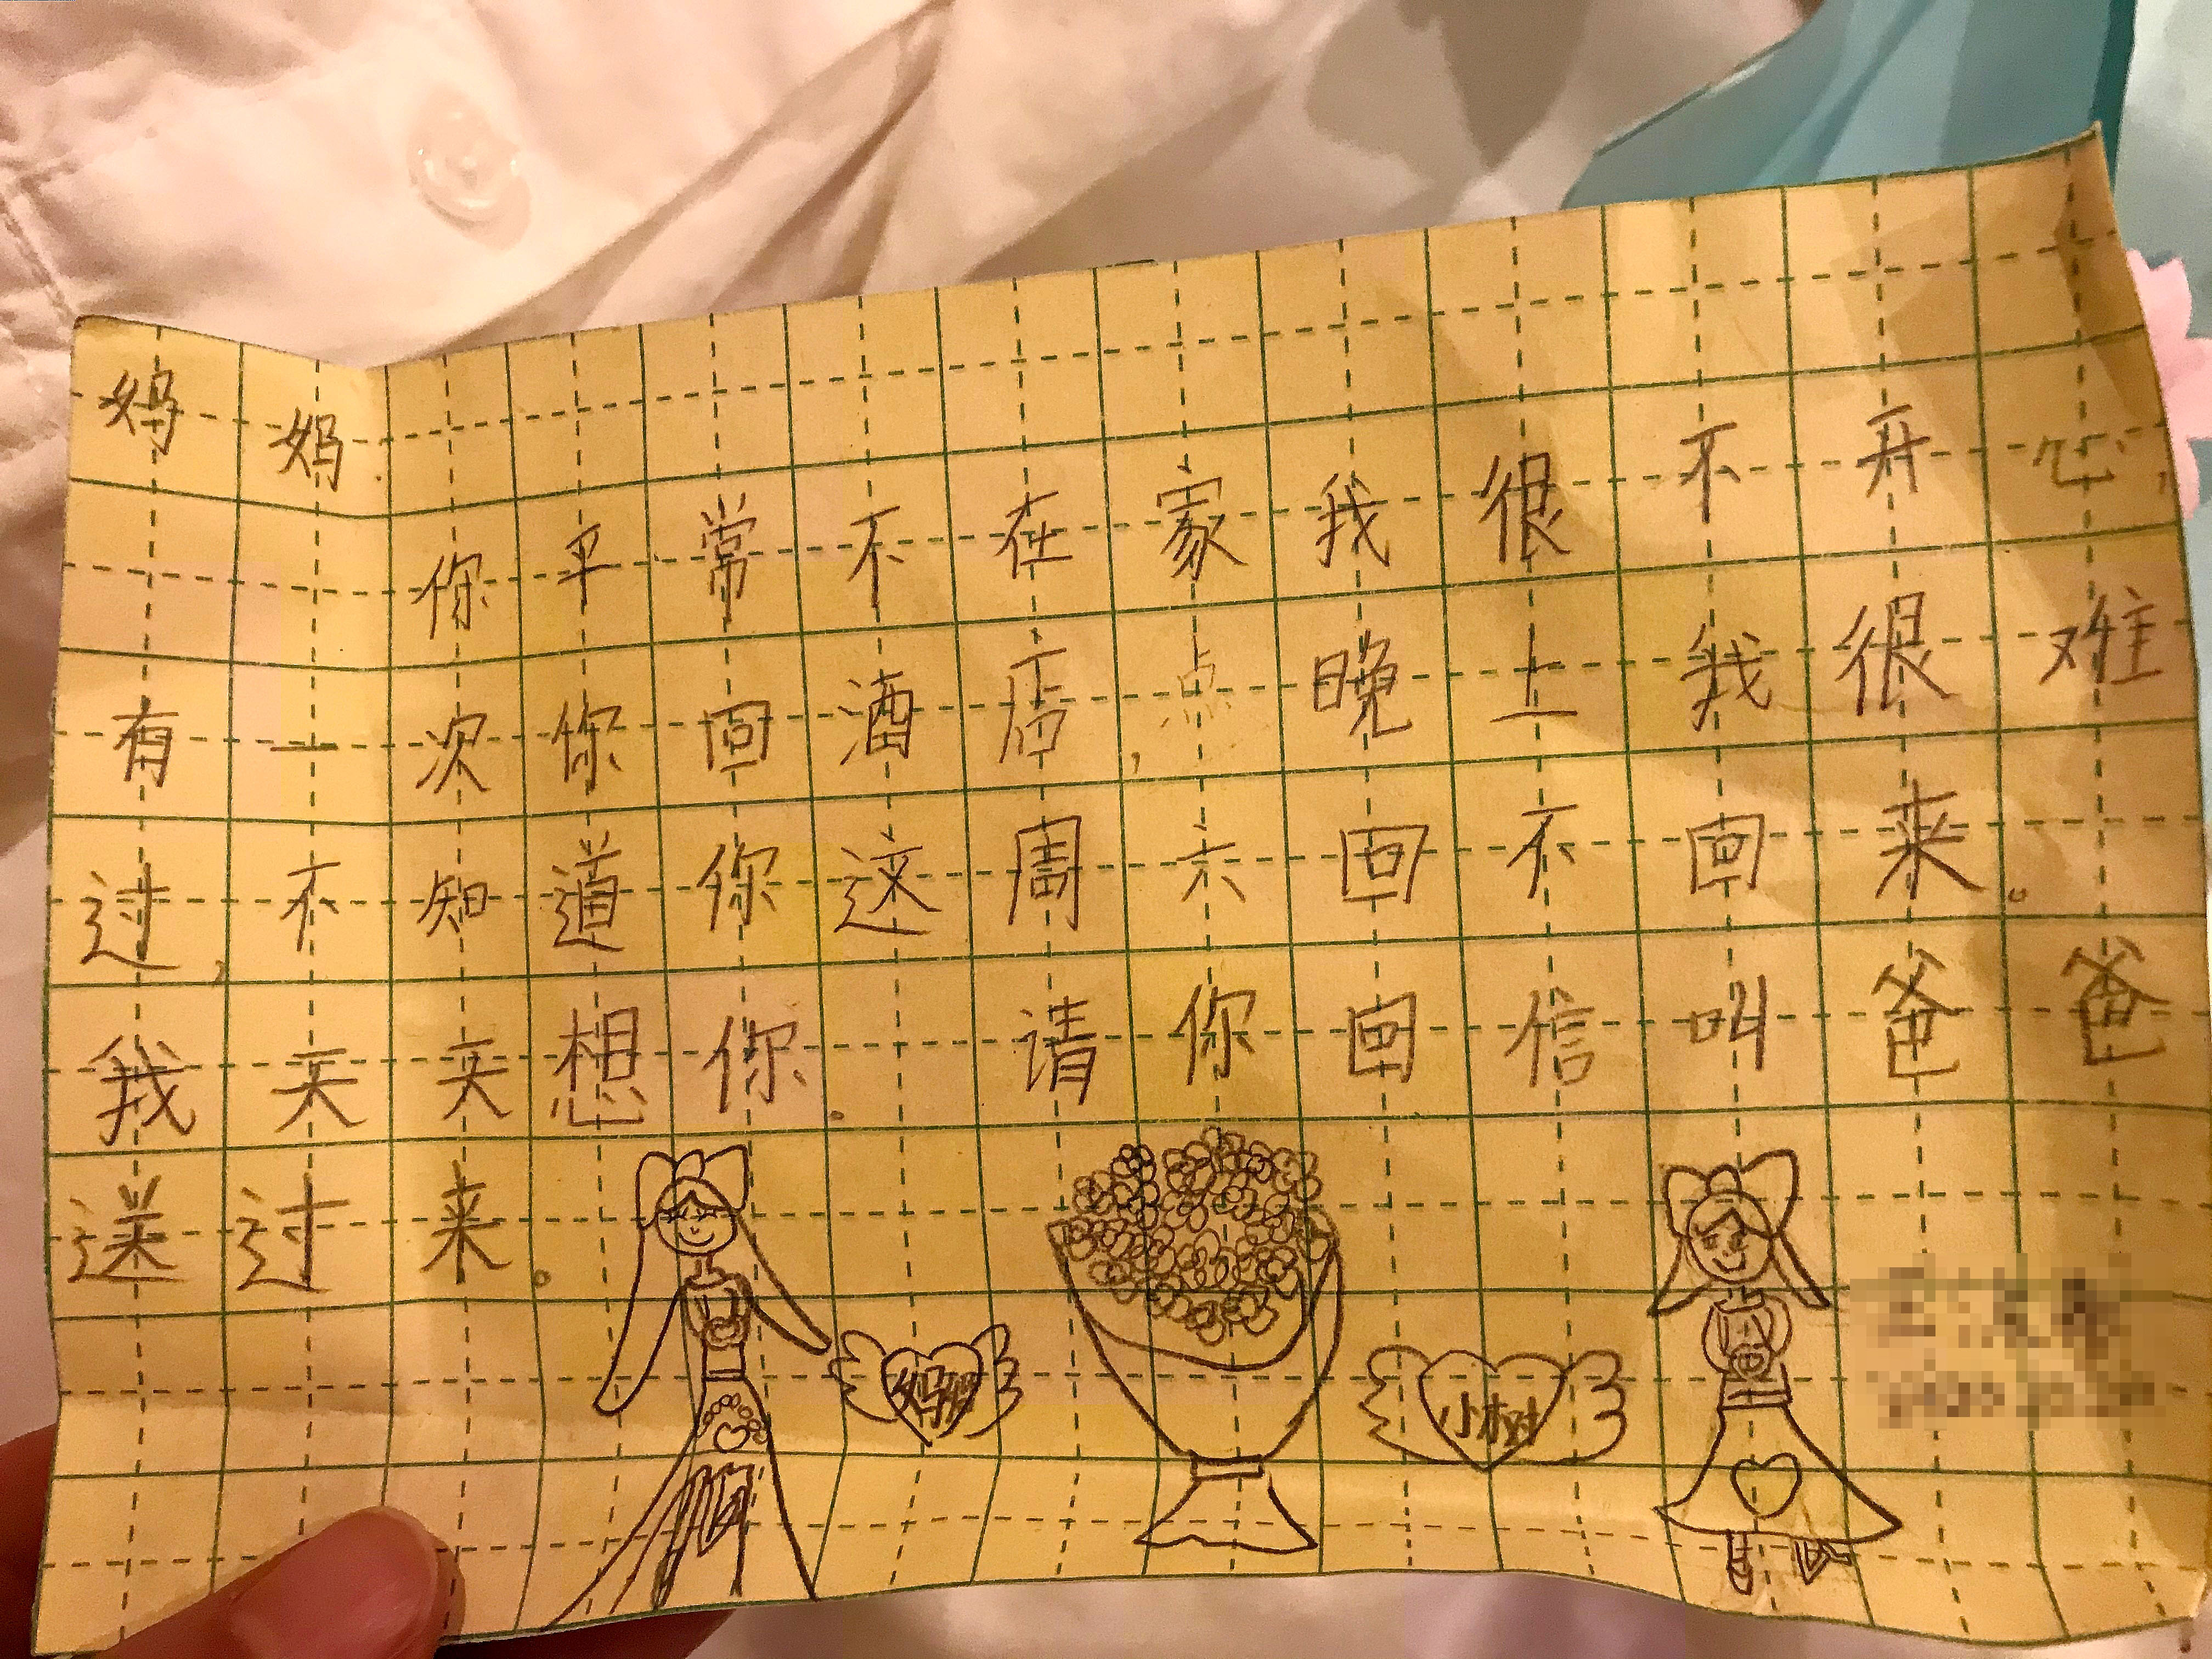 妈妈:
你平常不在家我很不开心,
有一次你回酒店,晚上我很难
过,不知道你这周六回不回来。
我天天想你。请你回信叫爸爸
送过来。
妈妈
小树